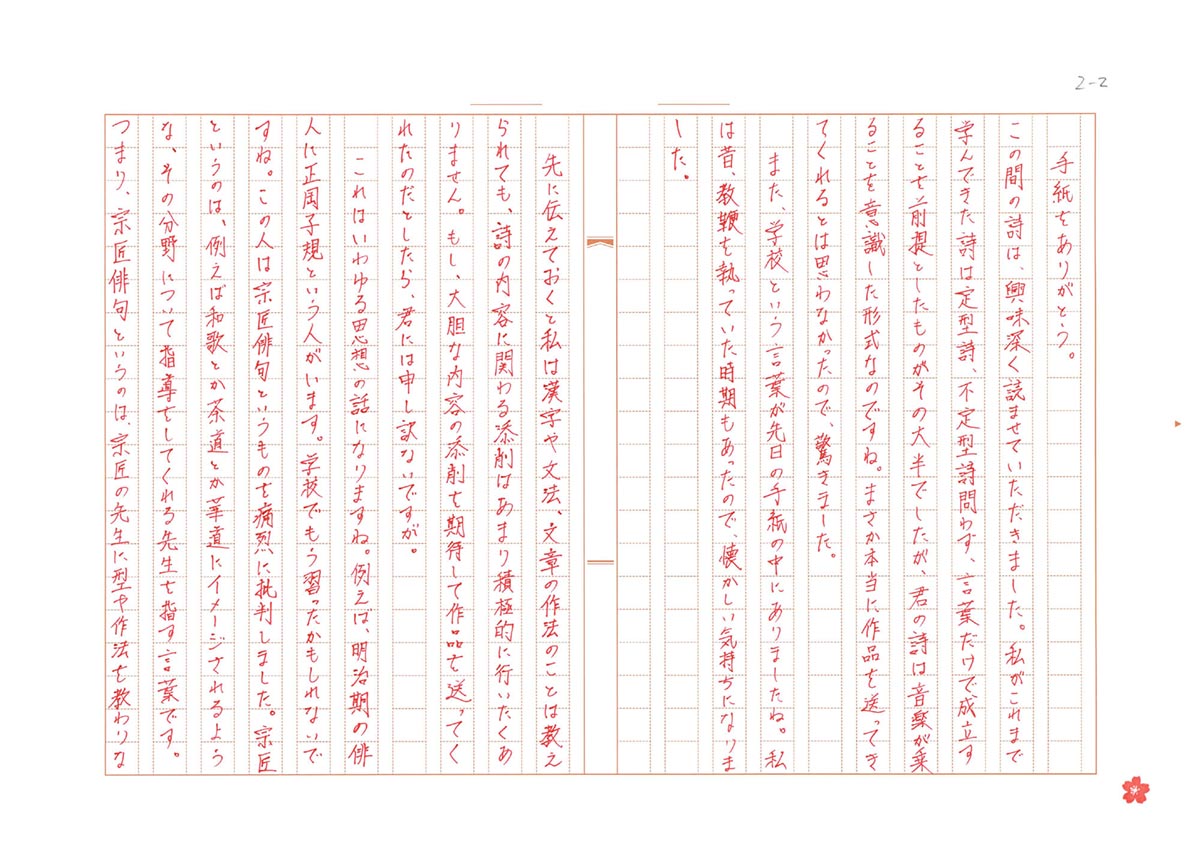 2-2
手紙をありがとう。
この間の詩は、興味深く読ませていただきました。私がこれまで
学んできた詩は定型詩、不定型詩問わず、言葉だけで成立す
ることを前提としたものがその大半でしたが、君の詩は音楽が乗
ることを意識した形式なのですね。まさか本当に作品を送ってき
てくれるとは思わなかったので、驚きました。
また、学校という言葉が先日の手紙の中にありましたね。私
は昔、教鞭を執っていた時期もあったので、懐かしい気持ちになりま
した。
先に伝えておくと私は漢字や文法、文章の作法のことは教え
られても、詩の内容に関わる添削はあまり積極的に行いたくあ
りません。もし、大胆な内容の添削を期待して作品を送ってく
れたのだとしたら、君には申し訳ないですが。
これはいわゆる思想の話になりますね。例えば、明治期の俳
人に正岡子規という人がいます。学校でもう習ったかもしれないで
すね。この人は宗匠俳句というものを痛烈に批判しました。宗匠
というのは、例えば和歌とか茶道とか華道にイメージされるよう
な、その分野について指導をしてくれる先生を指す言葉です。
つまり、宗匠俳句というのは、宗匠の先生に型や作法を教わりな